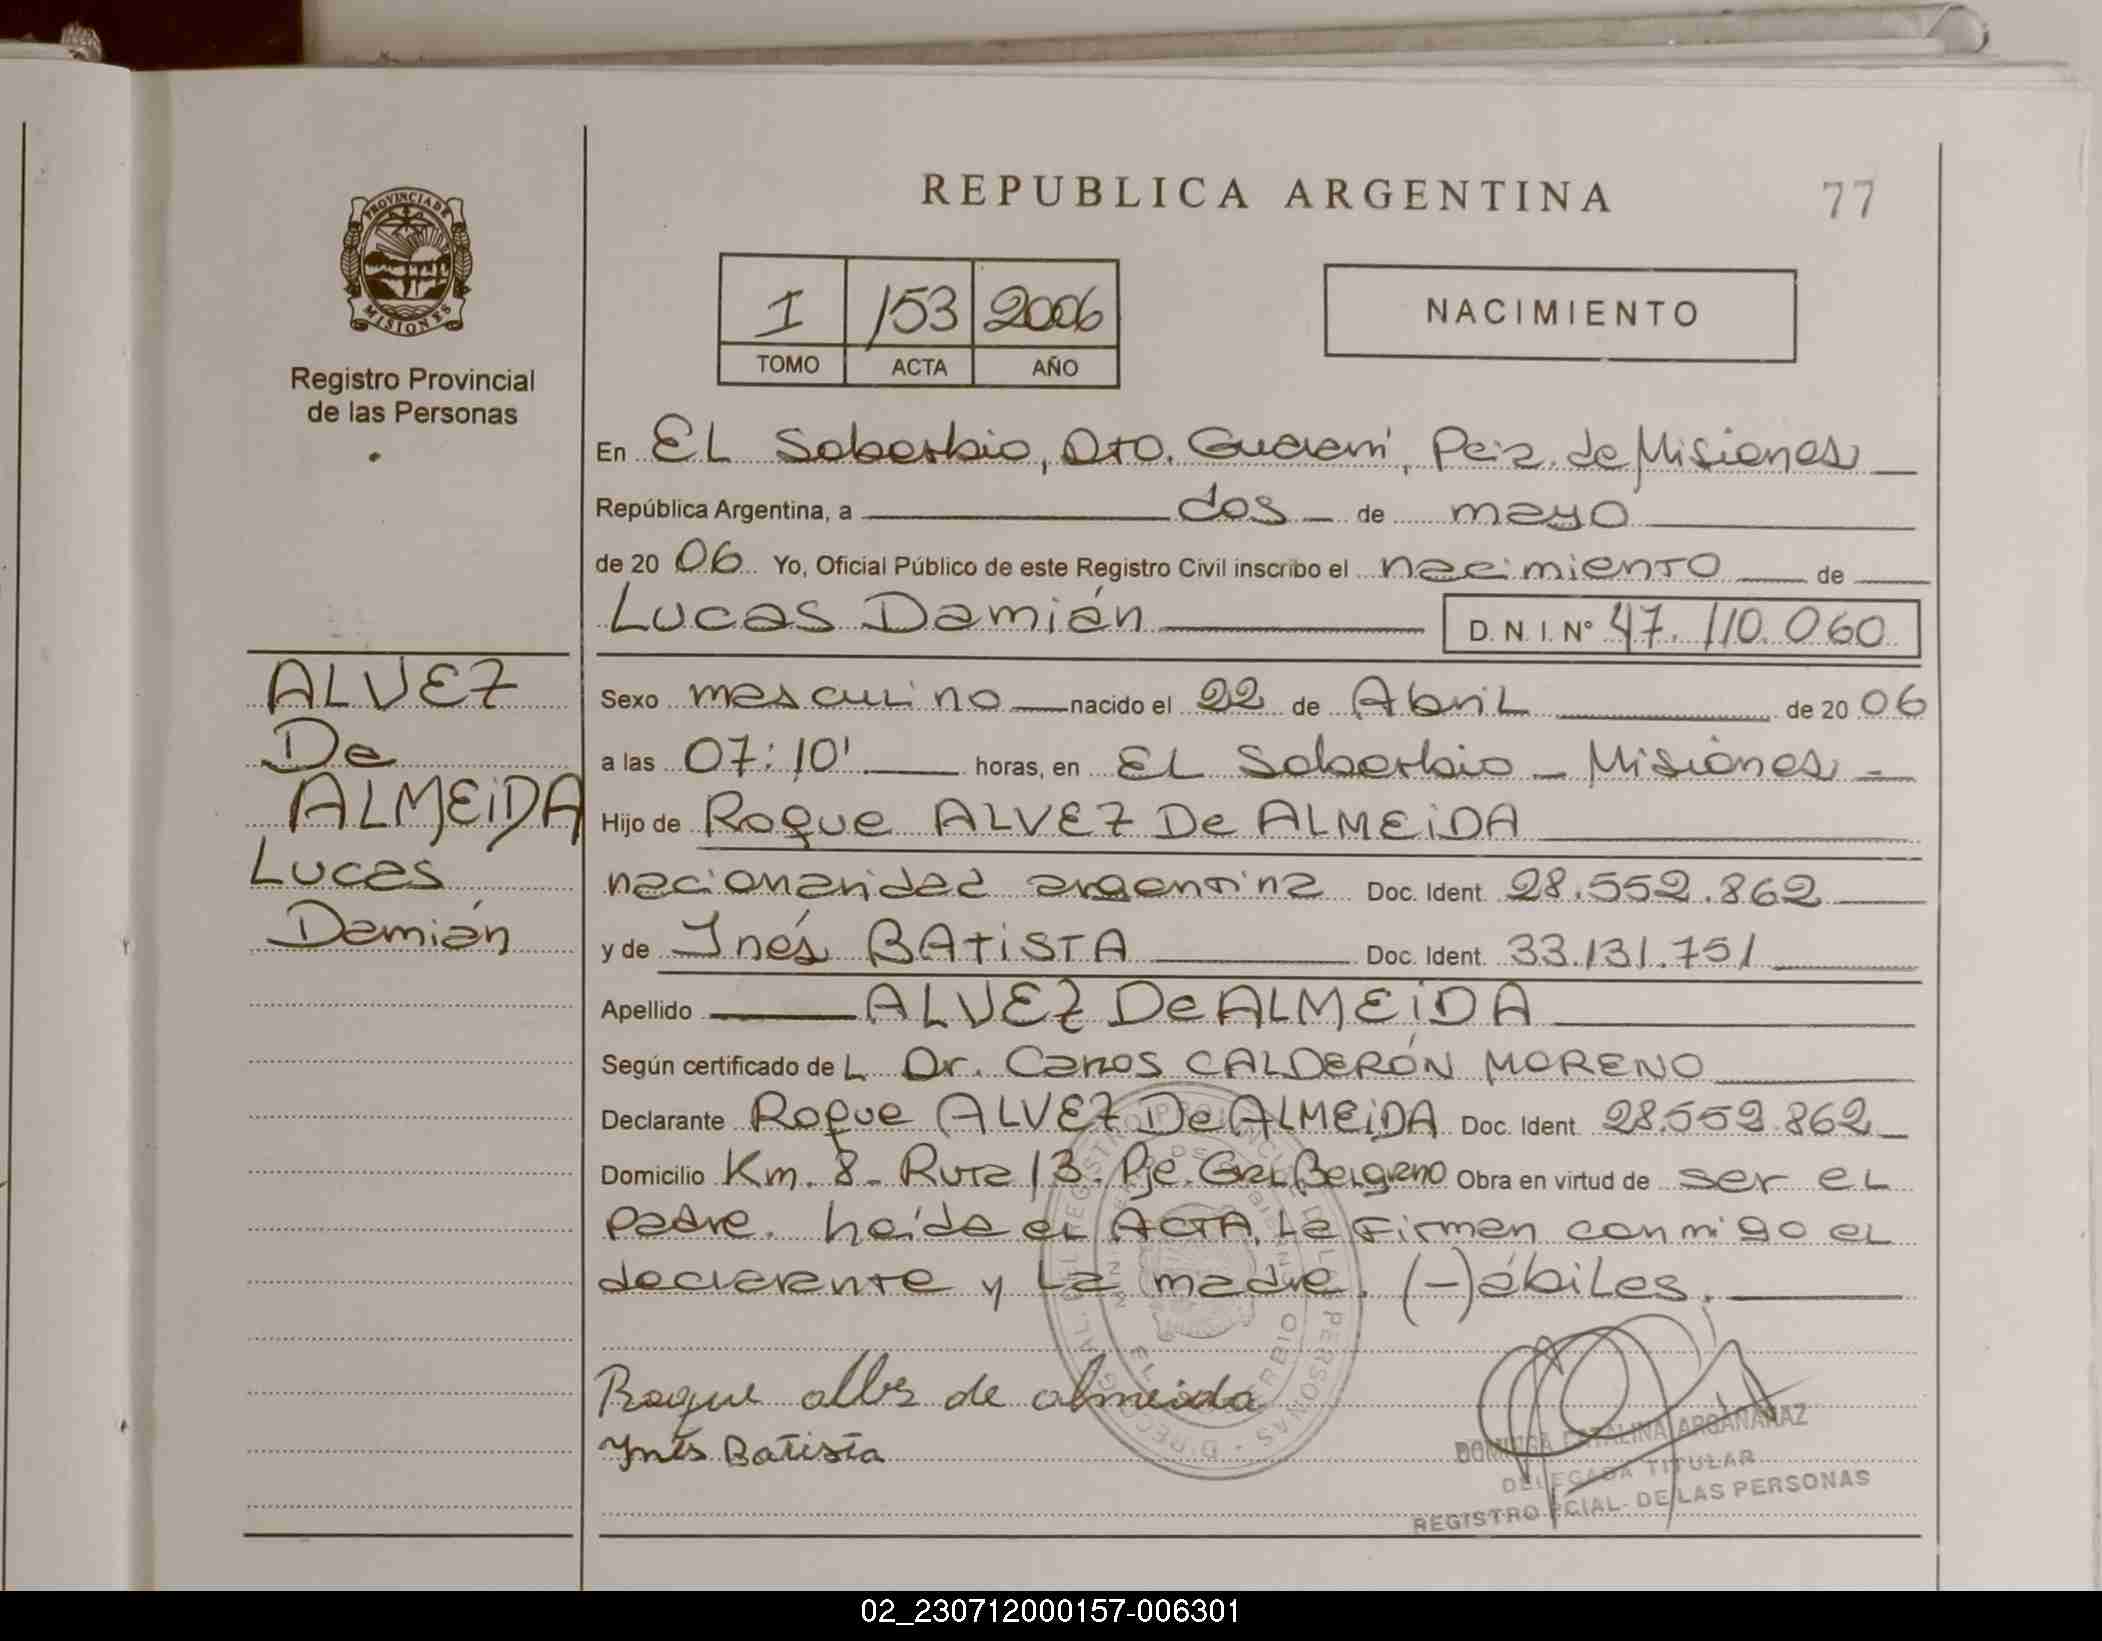 REPUBLICA ARGENTINA
77
PROVINCIA DE
MISIONES
Registro Provincial
de las Personas
I 153 2006
TOMO ACTA AÑO
NACIMIENTO
En EL Soberbio, Dto. Guaraní, Pcia. de Misiones
República Argentina, a dos de mayo
de 20 06 Yo, Oficial Público de este Registro Civil inscribo el nacimiento de
Lucas Damián D. N. I. Nº 47.110.060
ALVEZ
De
ALMEiDA
Lucas
Damián
Sexo masculino nacido el 22 de Abril de 20 06
a las 07:10' horas, en EL Soberbio - Misiones -
Hijo de Roque ALVEZ De ALMEiDA
nacionalidad argentina Doc. Ident. 28.552.862
y de Inés BATiSTA Doc. Ident. 33.131.751
Apellido ALVEZ De ALMEiDA
Según certificado de L Dr. Carlos CALDERÓN MORENO
Declarante Roque ALVEZ De ALMEiDA Doc. Ident. 28.552.862
Domicilio Km. 8 - Ruta 13. Pje. Gral. Belgrano Obra en virtud de ser el
padre. Leída el ACTA, La Firman conmigo el
declarante y La madre. (-)ábiles.
Roque de almeida
Inés Batista
DOMINGA CATALINA ARGAÑARAZ
DELEGADA TITULAR
REGISTRO PCIAL. DE LAS PERSONAS
02_230712000157-006301